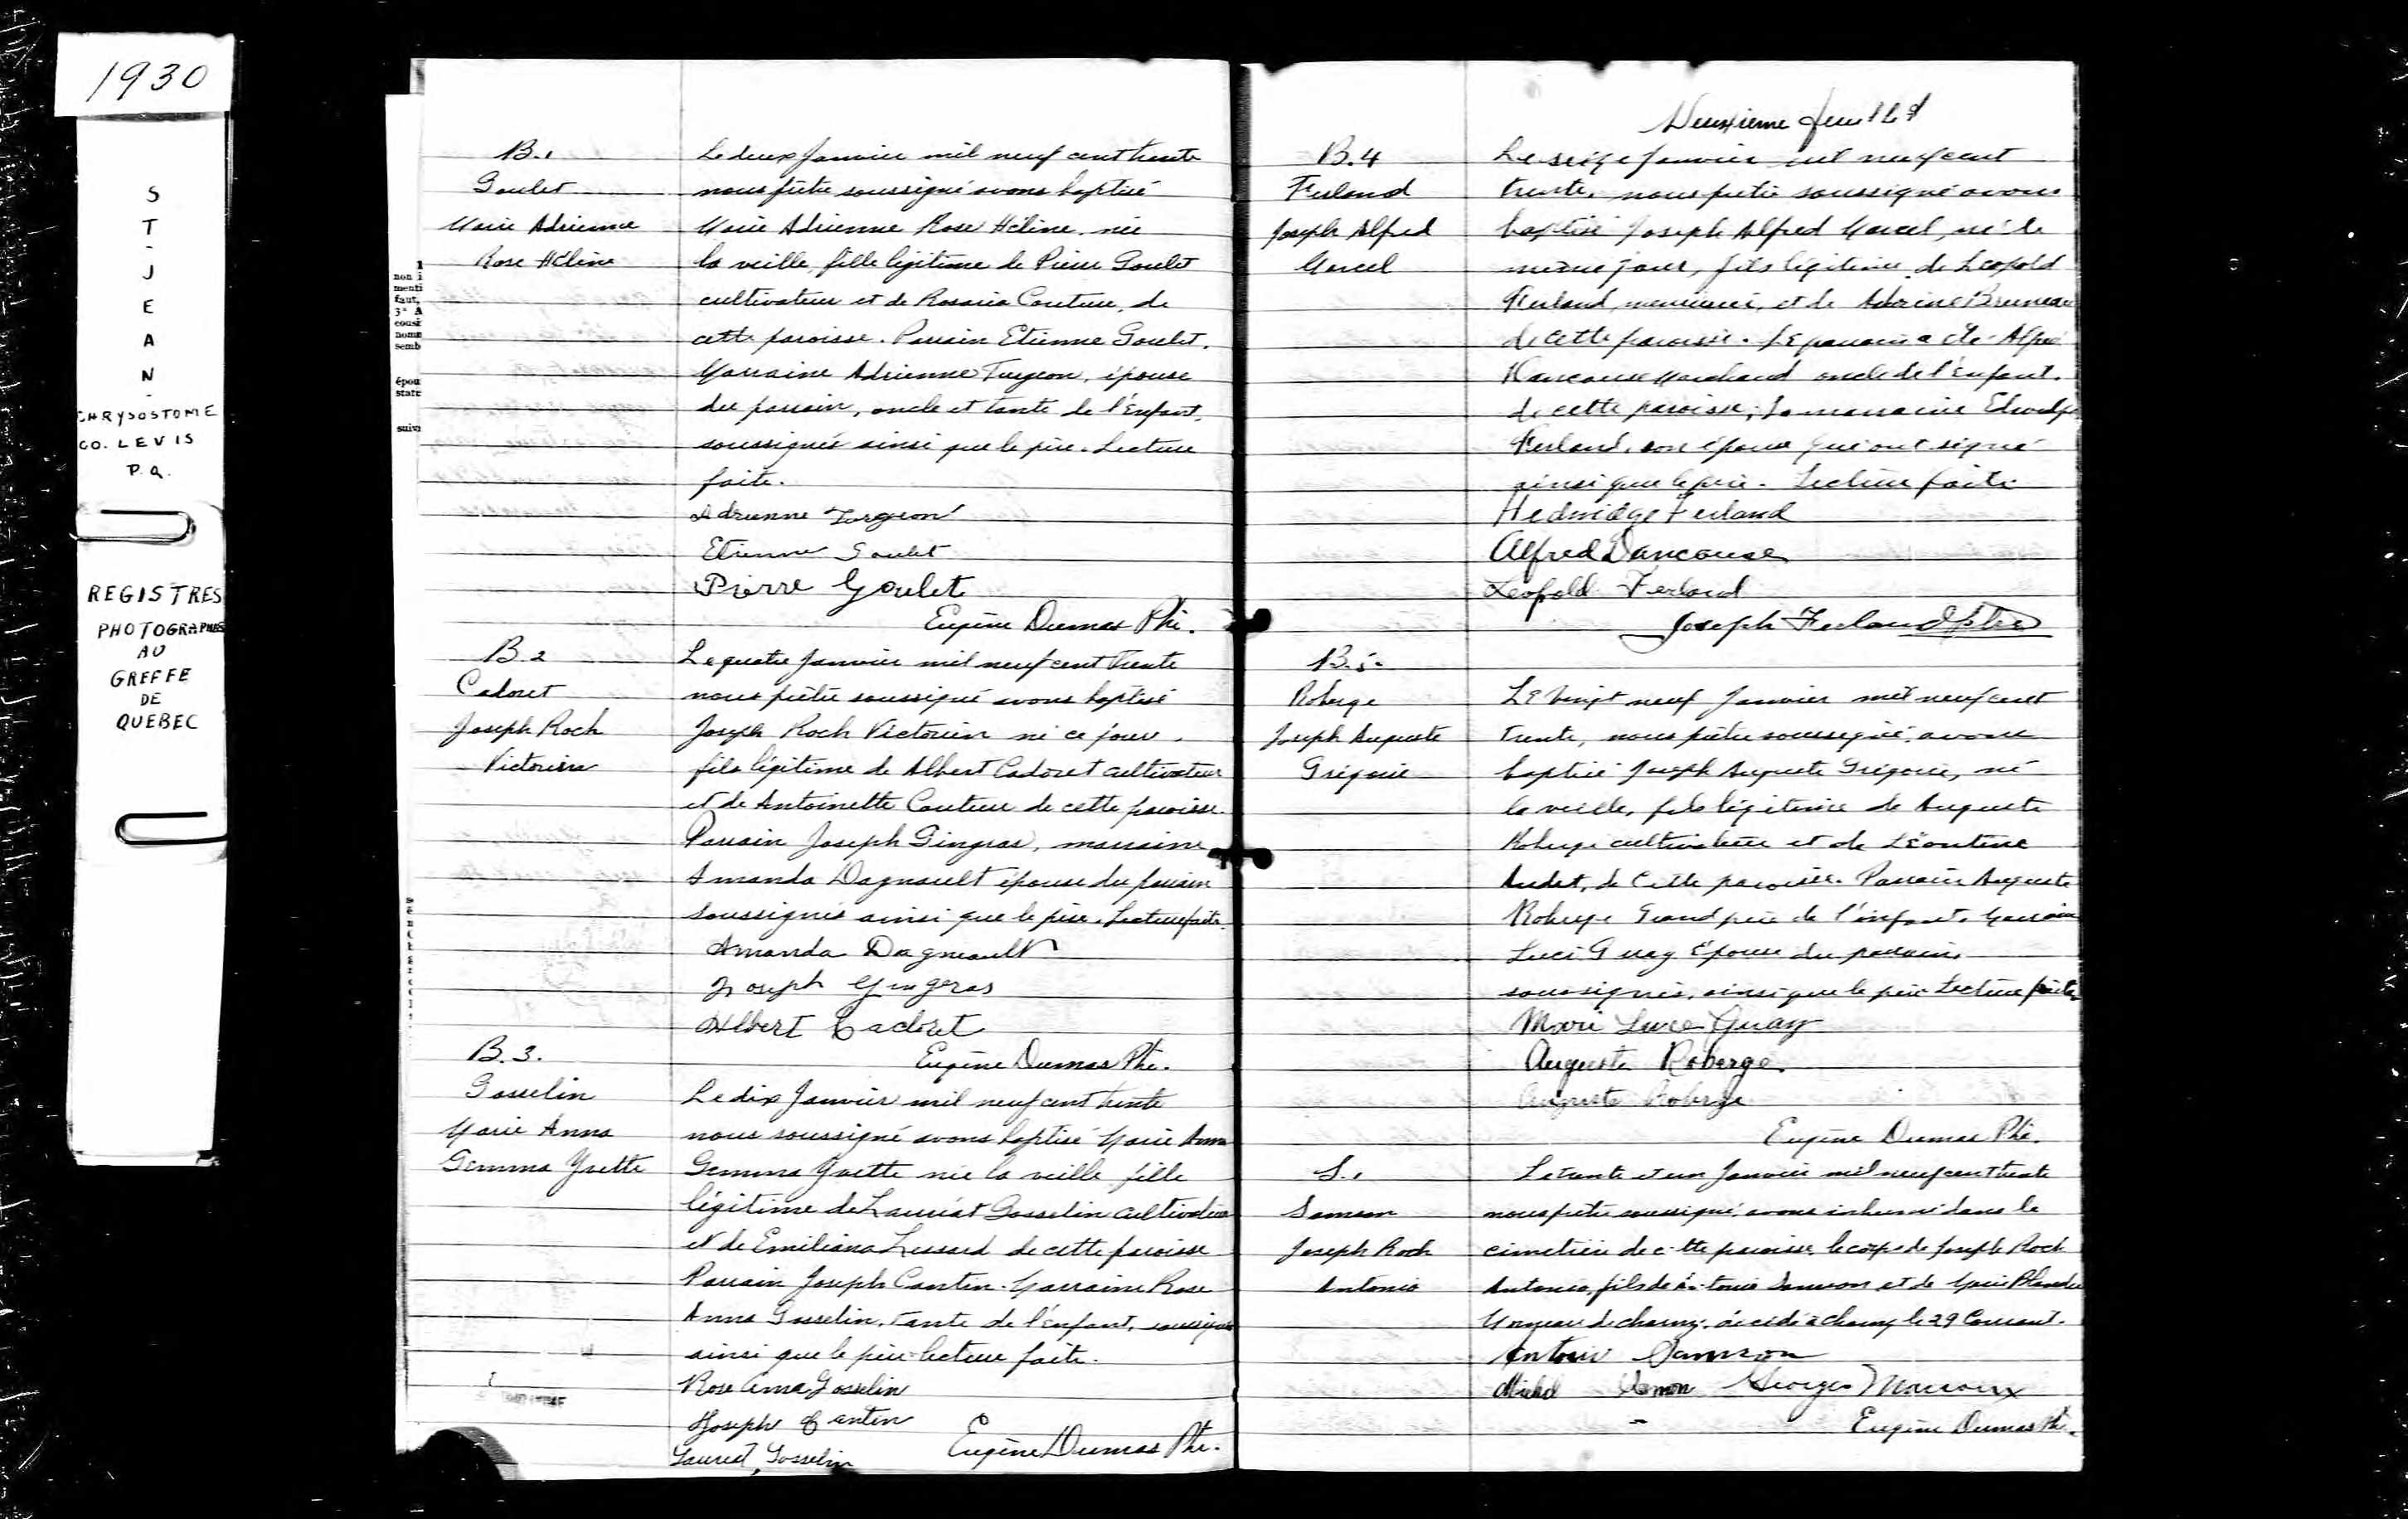 1930
ST-JEAN-
CHRYSOSTOME
CO. LEVIS
P.Q.
REGISTRES
PHOTOGRAPHIÉS
AU
GREFFE
DE
QUEBEC
1
non i
menti
faut,
3° A
cousi
nome
semb
épou
state
suiva
B.1
Goulet
Marie Adrienne
Rose Hélène
Le deux Janvier mil neuf cent trente
nous prêtre soussigné avons baptisé
Marie Adrienne Rose Hélène, née
la veille, fille légitime de Pierre Goulet
cultivateur et de Rosaria Couture, de
cette paroisse. Parrain Etienne Goulet.
Marraine Adrienne Turgeon, épouse
du parrain, oncle et tante de l'Enfant,
soussignés ainsi que le père. Lecture
faite.
Adrienne Turgeon
Etienne Goulet
Pierre Goulet
Eugène Dumas Ptre.
B.2
Cadoret
Joseph Roch
Victorien
Le quatre Janvier mil neuf cent trente
nous prêtre soussigné avons baptisé
Joseph Roch Victorien né ce jour.
fils légitime de Albert Cadoret cultivateur
et de Antoinette Couture de cette paroisse.
Parrain Joseph Gingras, marraine
Amanda Dagneault épouse du parrain
soussignés ainsi que le père. Lecture faite.
Amanda Dagneault
Joseph Gingras
Albert Cadoret
Eugène Dumas Ptre.
B.3.
Gosselin
Marie Anna
Gemma Yvette
Le dix Janvier mil neuf cent trente
nous soussigné avons baptisé Marie Anna
Gemma Yvette née la veille fille
légitime de Lauréat Gosselin cultivateur
et de Emiliana Lessard de cette paroisse
Parrain Joseph Cantin. Marraine Rose
Anna Gosselin, tante de l'enfant, soussignés
ainsi que le père lecture faite.
Rose Anna Gosselin
Joseph Cantin
Eugène Dumas Ptre.
Gosselin
Deuxième feuillet
B.4
Ferland
Joseph Alfred
Marcel
Le seize Janvier mil neuf cent
trente, nous prêtre soussigné avons
baptisé Joseph Alfred Marcel, né le
même jour, fils légitime de Léopold
Ferland, menuisier, et de Bruneau
de cette paroisse. Le parrain a été Alfred
Dancause marchand oncle de l'enfant.
de cette paroisse; la marraine
Ferland, son épouse qui ont signé
ainsi que le père. Lecture faite
Hedwidge Ferland
Alfred Dancause
Leopold Ferland
Joseph Ferland ptre
B.5.
Roberge
Joseph Auguste
Grégoire
Le vingt neuf Janvier mil neuf cent
trente, nous prêtre soussigné, avons
baptisé Joseph Auguste Grégoire, né
la veille, fils légitime de Auguste
Roberge cultivateur et de Léontine
Audet, de cette paroisse. Parrain Auguste
Roberge Grand père de l'enfant. Marraine
Luce Guay Épouse du parrain.
soussignés, ainsi que le père Lecture faite
Marie Luce Guay
Auguste Roberge.
Auguste Roberge
Eugène Dumas Ptre.
S.1
Samson
Joseph Roch
Antonio
Le trente et un Janvier mil neuf cent trente
nous prêtre soussigné, avons inhumé dans le
cimetière de cette paroisse le corps de Joseph Roch
Antonio, fils de Antonio Samson et de Marie Blanche
de Charny. décédé à Charny le 29 Courant.
Antonio Samson
Georges Marcoux
Eugène Dumas Ptre.